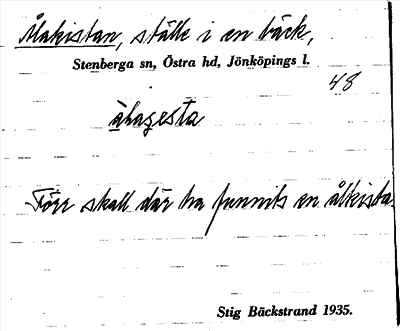 Ålakistan, ställe i en bäck,
Stenberga sn, Östra hd, Jönköpings l.
48
Förr skall där ha funnits en ålkista.
Stig Bäckstrand 1935.